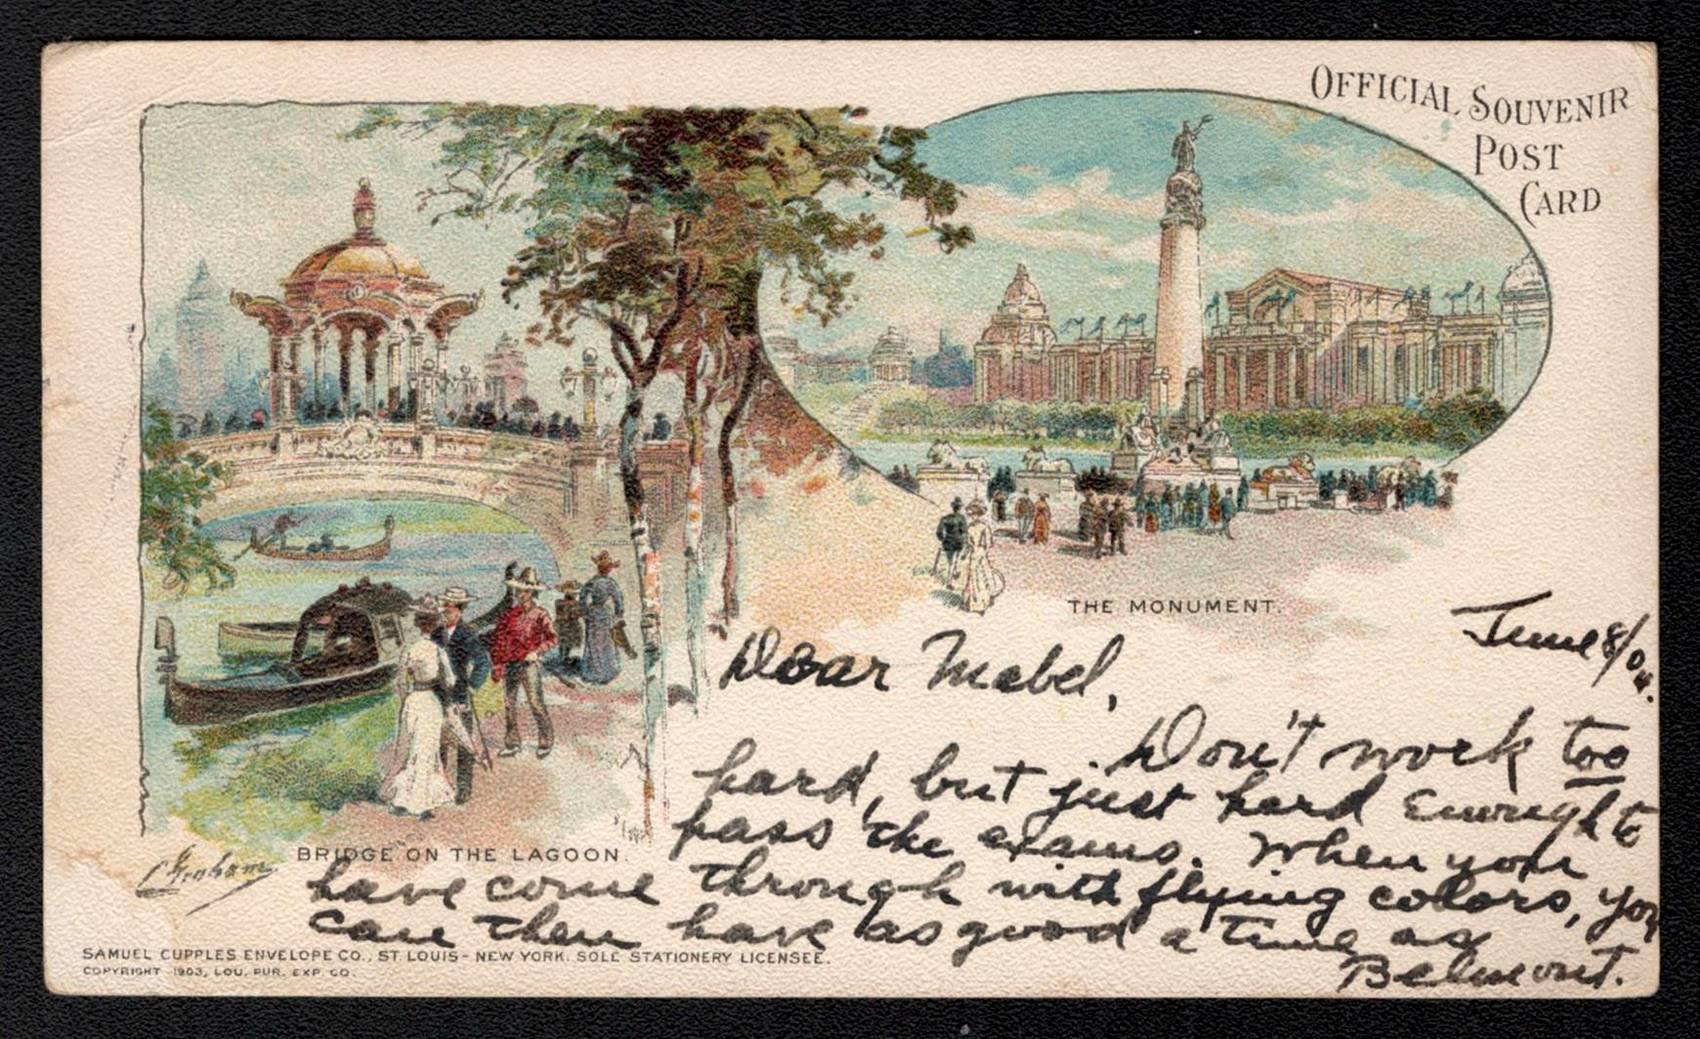 OFFICIAL SOUVENIR
POST
CARD
THE MONUMENT.
June 8/04.
Dear Mabel,
Don't work too
hard, but just hard enough to
pass the exams. When you
have come through with flying colors, you
can then have as good a time as
Belmont.
BRIDGE ON THE LAGOON.
C Graham
SAMUEL CUPPLES ENVELOPE CO., ST LOUIS - NEW YORK. SOLE STATIONERY LICENSEE.
COPYRIGHT 1903, LOU. PUR. EXP. CO.